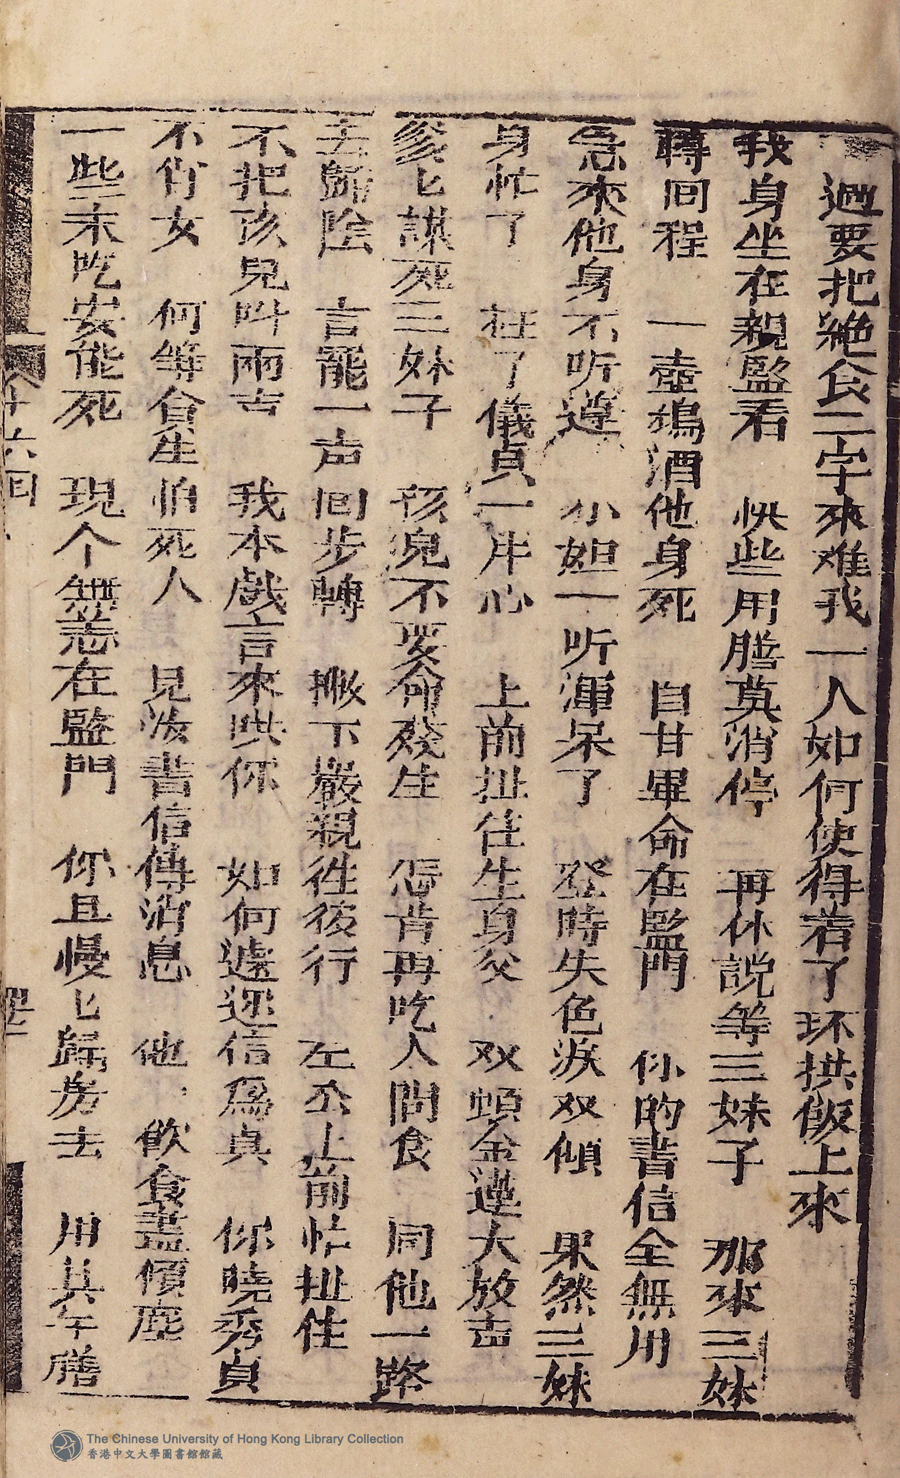 過要把絶食二字來难我一人如何使得若了环拱飯上來
我身坐在親監看　快些用膳莫消停　再休説等三妹子　那來三妹
轉囘程　一壺鴆酒他身死　自甘畢命在監門　你的書信全無用
急來他身不听遵　小妲一听渾呆了　登時失色淚双傾　果然三妹
身忙了　枉了儀貞一片心　上前扯住生身父　双頓金蓮大放声
爹匕謀死三妹子　孩兒不要命殘生　怎肯再吃人間食　同他一路
去歸陰　言罷一声囘步轉　撇下嚴親往後行　左公上前忙扯住
不把孩兒呌兩声　我本戲言來哄你　如何遽迩信爲真　你曉秀貞
不肖女　何等貪生怕死人　見汝書信傳消息　他飲食盖傾塵
一些未吃安能死　現个無恙在監門　你且慢匕歸房去　用其午膳
十六囘
The Chinese University of Hong Kong Library Collection
香港中文大學圖書館館藏